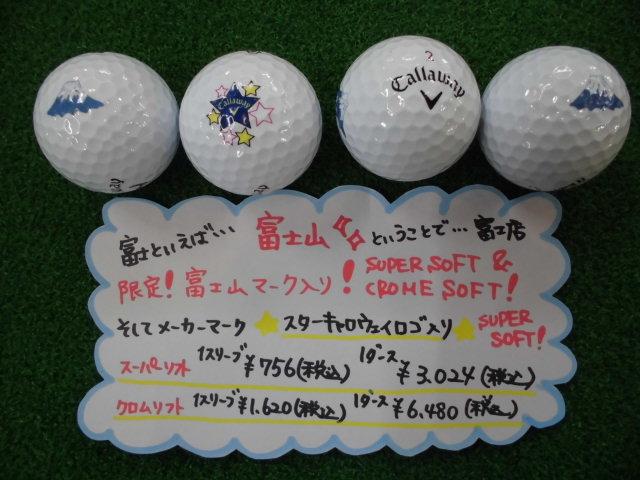 Callaway
2
Callaway
富士といえば… 富士山 ということで… 富士店
限定! 富士山マーク入り! SUPER SOFT & CROME SOFT!
そしてメーカーマーク スターキャロウェイロゴ入り SUPER SOFT!
スーパーソフト 1スリーブ ¥756(税込) 1ダース ¥3.024(税込)
クロムソフト 1スリーブ ¥1.620(税込) 1ダース ¥6.480(税込)